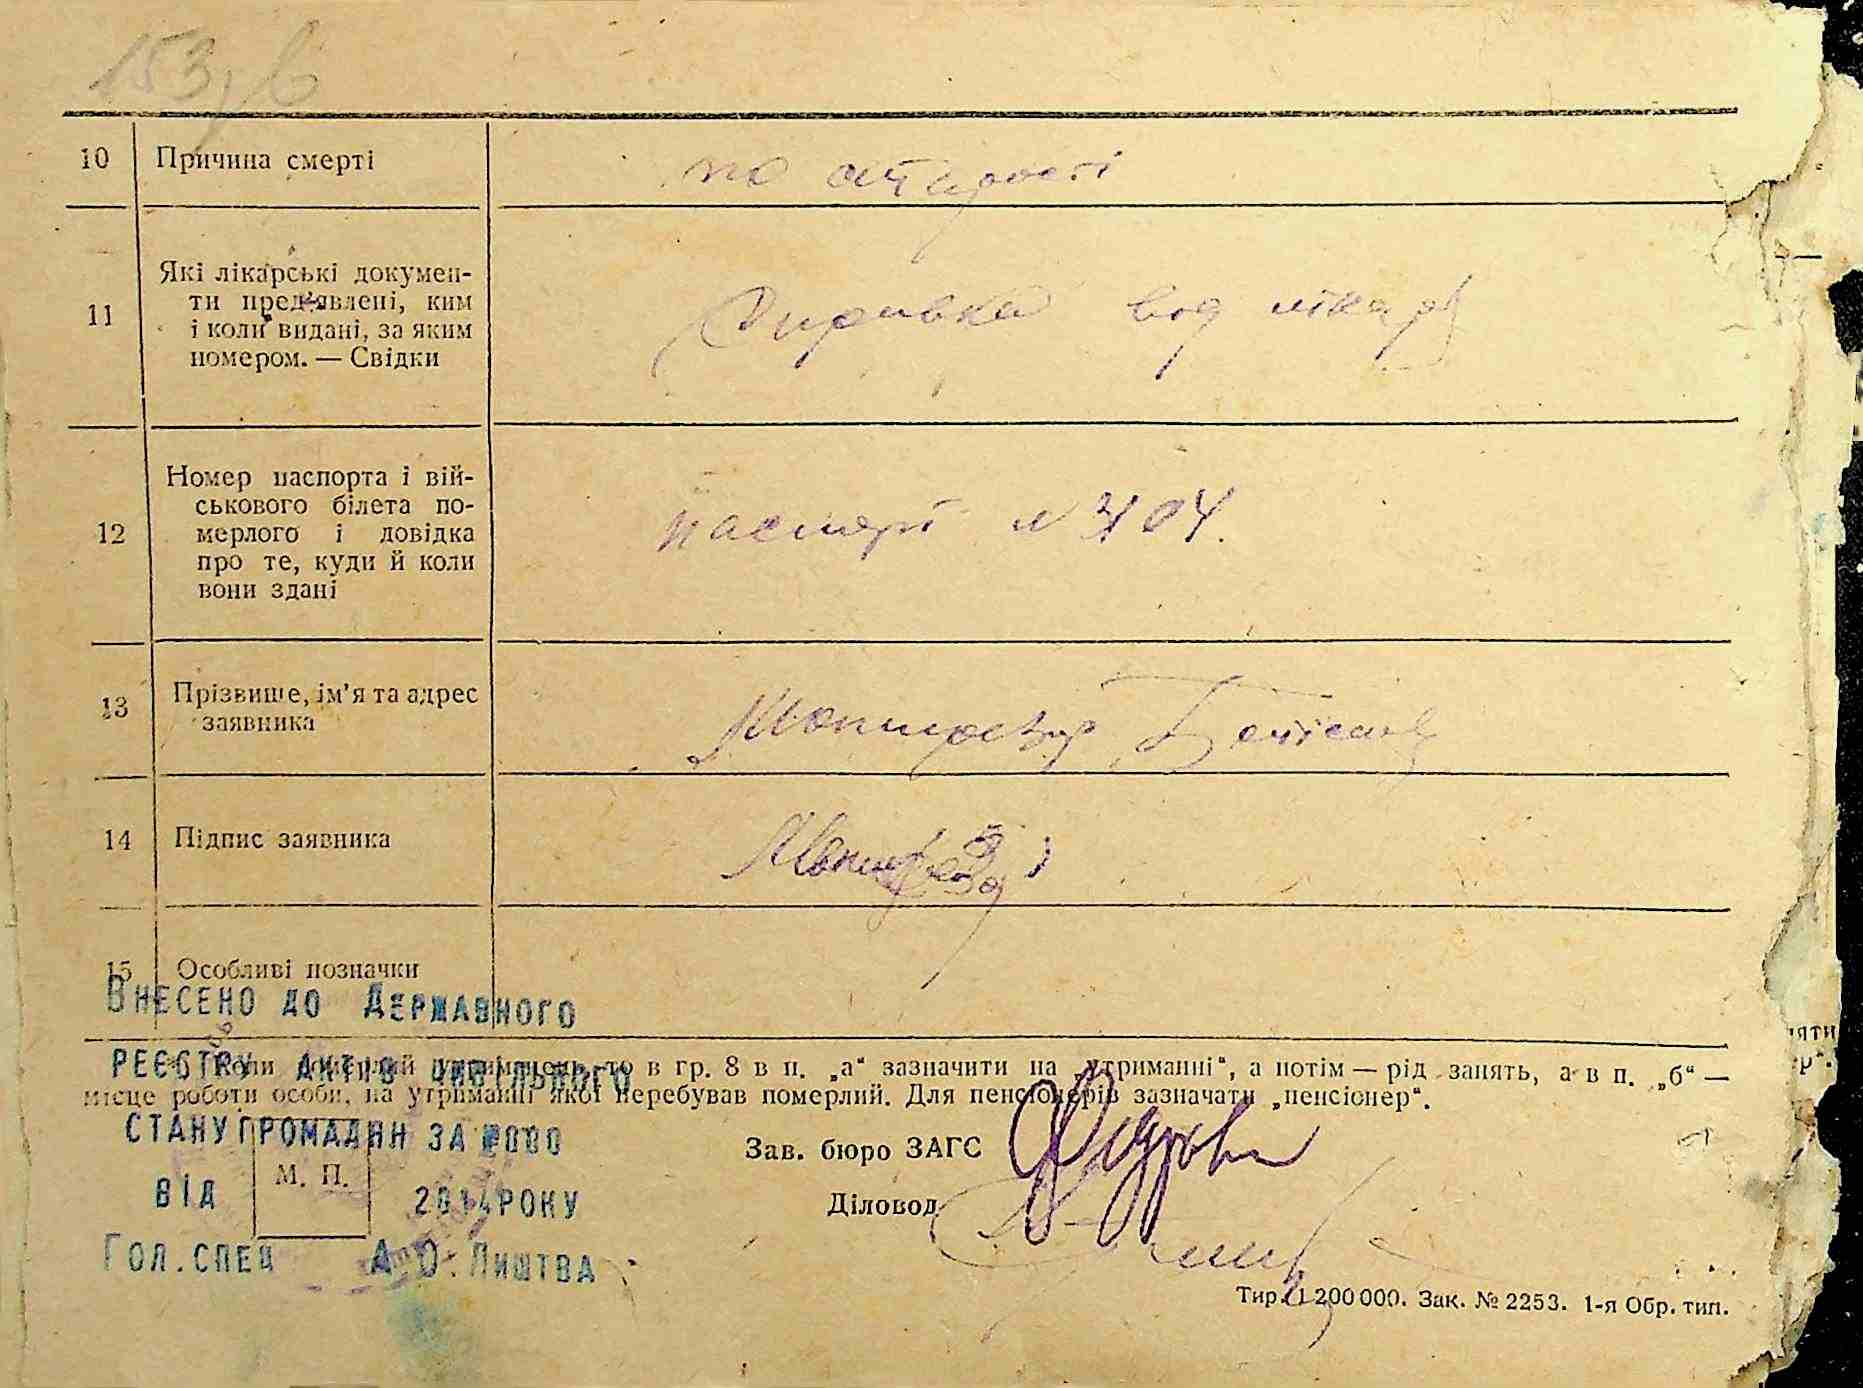 153
10 Причина смерті по старості
11 Які лікарські докумен-
ти пред'явлені, ким
і коли видані, за яким
номером. — Свідки
Справка вод лікаря
12 Номер паспорта і вій-
ськового білета по-
мерлого і довідка
про те, куди й коли
вони здані
паспорт № 404.
13 Прізвище, ім'я та адрес
заявника
14 Підпис заявника
15 Особливі позначки
Внесено до Державного
реєстру актів цивільного
стану громадян за №
від 2014 року
Гол.спец А.О.Лиштва
Коли померлий утриманець, то в гр. 8 в п. „а“ зазначити на „утриманні“, а потім — рід занять, а в п. „б“ —
місце роботи особи, на утриманні якої перебував померлий. Для пенсіонерів зазначати „пенсіонер“.
М. П.
Зав. бюро ЗАГС
Діловод
Тир. 1 200 000. Зак. № 2253. 1-я Обр. тип.